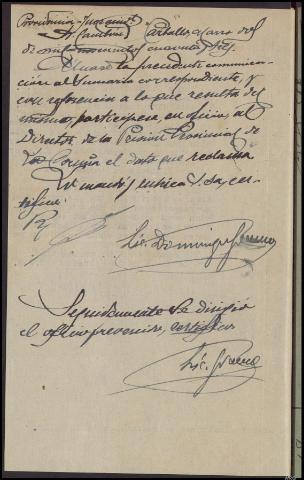 Providencia - Juez
Carballo
de mil novecientos cuarenta y
Únase la precedente comunica-
ción al sumario correspondiente, y
con referencia a lo que resulta del
mismo, participese en oficio al
Director de la Prisión Provincial de
La Coruña el dato que reclama
Lo mandó y rubrica S. Sª, cer-
tifico.
R/
Lic. Domingo
Seguidamente se dirigió
el oficio prevenido, certifico
Lic.